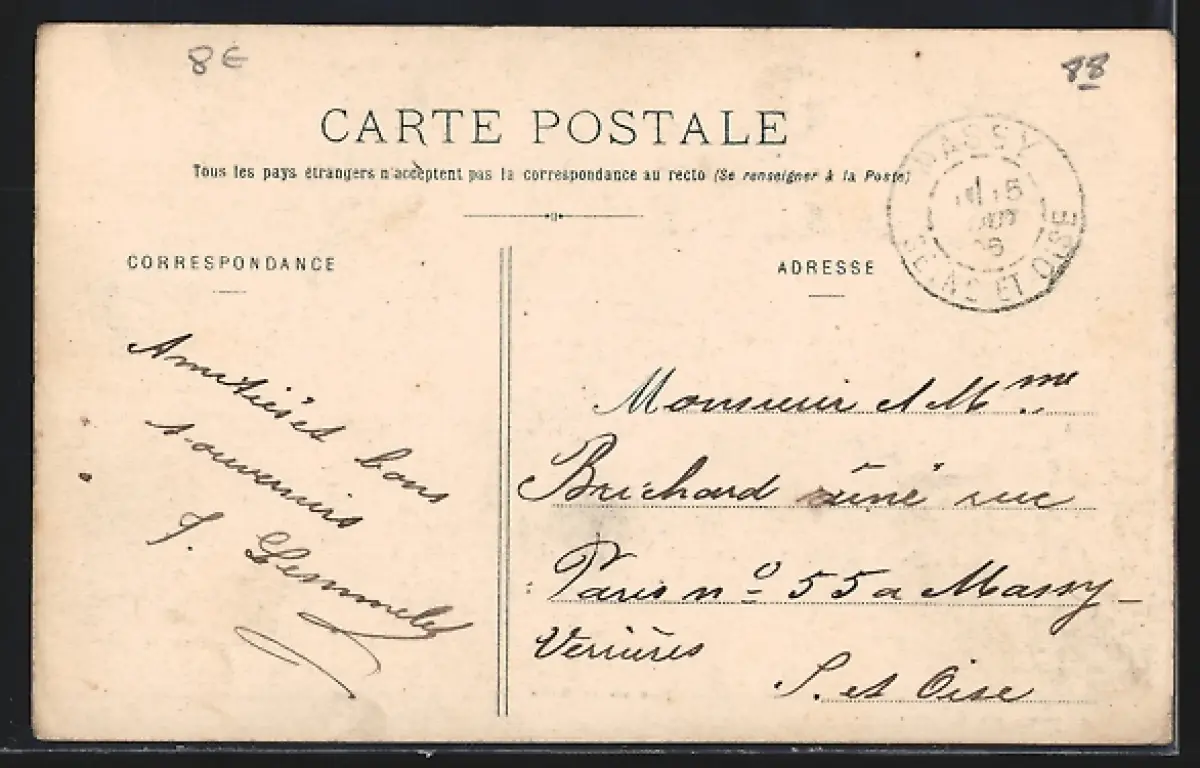 8€
88
CARTE POSTALE
Tous les pays étrangers n'acceptent pas la correspondance au recto (Se renseigner à la Poste)
MASSY
15
SEINE ET OISE
CORRESPONDANCE
ADRESSE
Amitiés et bons
souvenirs
Monsieur et Mme
Brichard aîné rue
Paris no 55 a Massy-
Verrières
S. et Oise